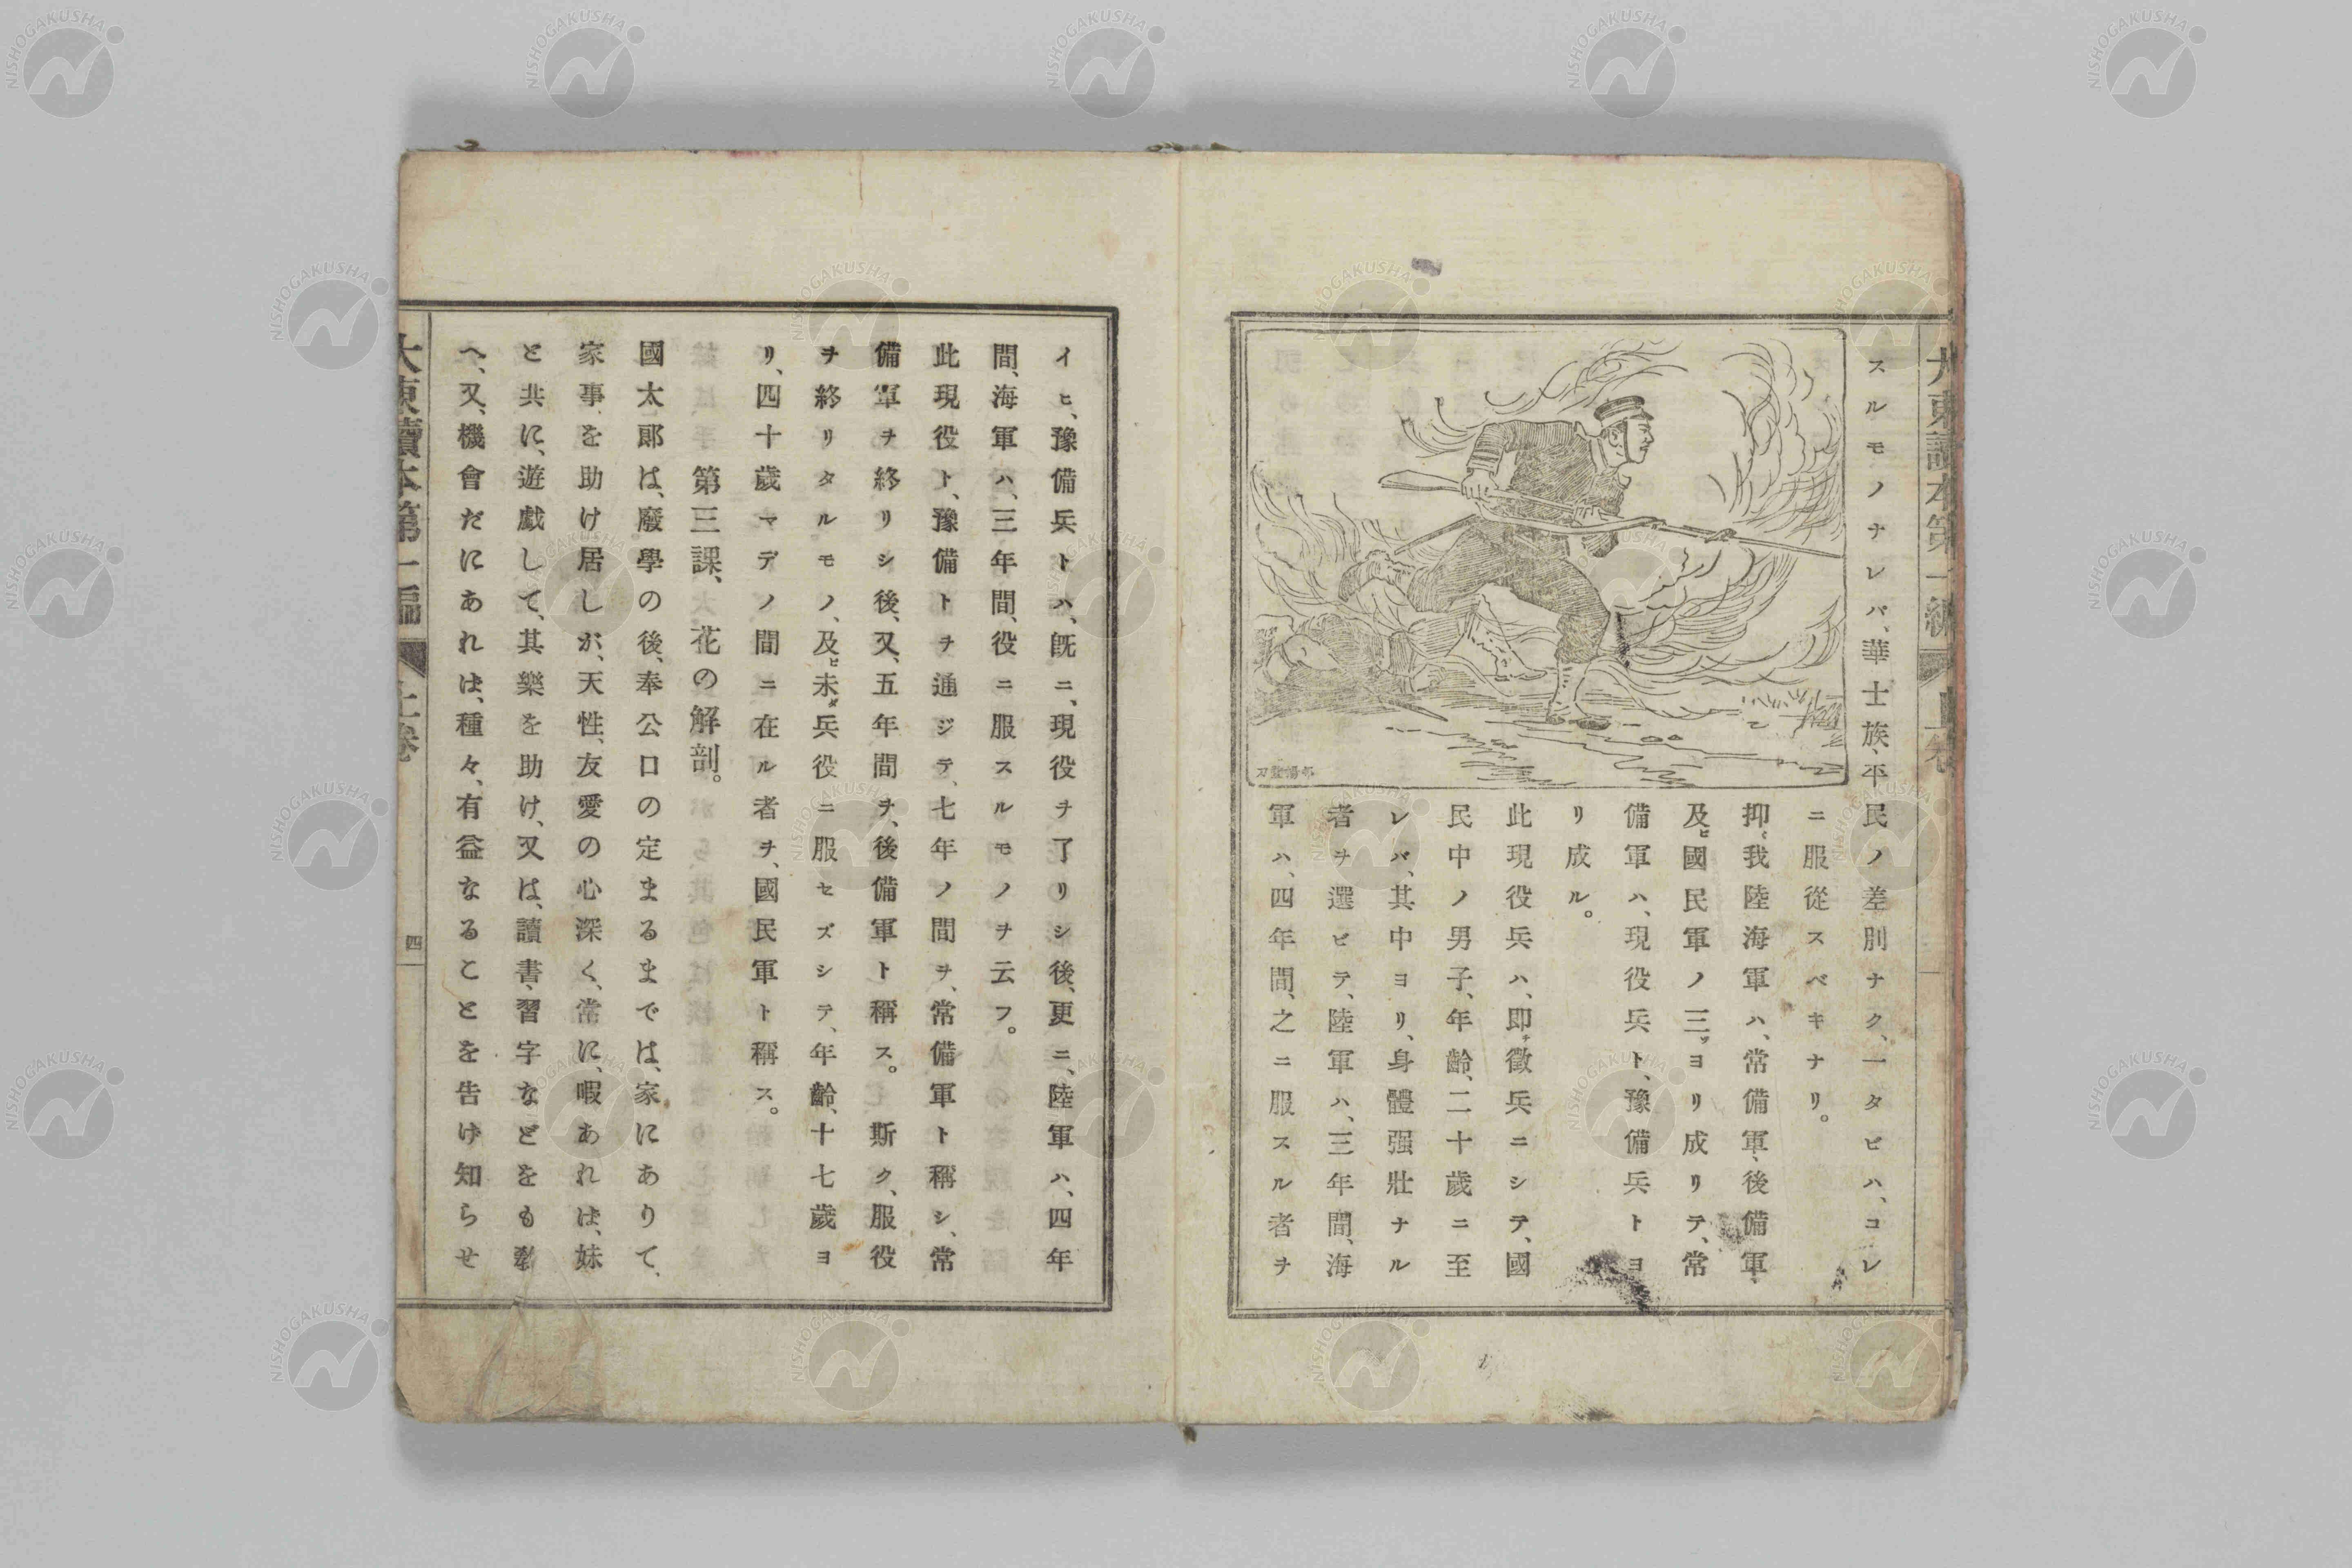 スルモノナレバ、華士族、平民ノ差別ナク、一タビハ、コレ
ニ服從スベキナリ。
抑〻我陸海軍ハ、常備軍、後備軍、
及ビ國民軍ノ三ッヨリ成リテ、常
備軍ハ、現役兵ト、豫備兵トヨ
リ成ル。
此現役兵ハ、即チ徴兵ニシテ、國
民中ノ男子、年齡、二十歲ニ至
レバ、其中ヨリ、身體强壯ナル
者ヲ選ビテ、陸軍ハ、三年間、海
軍ハ、四年間、之ニ服スル者ヲ
イヒ、豫備兵トハ、既ニ、現役ヲ了リシ後、更ニ、陸軍ハ、四年
間、海軍ハ、三年間、役ニ服スルモノヲ云フ。
此現役ト、豫備トヲ通ジテ、七年ノ間ヲ、常備軍ト稱シ、常
備軍ヲ終リシ後、又、五年間ヲ、後備軍ト稱ス。斯ク、服役
ヲ終リタルモノ、及ビ未ダ兵役ニ服セズシテ、年齡、十七歲ヨ
リ、四十歲マデノ間ニ在ル者ヲ、國民軍ト稱ス。
第三課、花の解剖。
國太郞は、廢學の後、奉公口の定まるまでは、家にありて、
家事を助け居しが、天性、友愛の心深く、常に、暇あれは、妹
と共に、遊戲して、其樂を助け、又は、讀書、習字などをも敎
へ、又、機會だにあれは、種々、有益なることを告け知らせ
大東讀本第二編 上卷
四